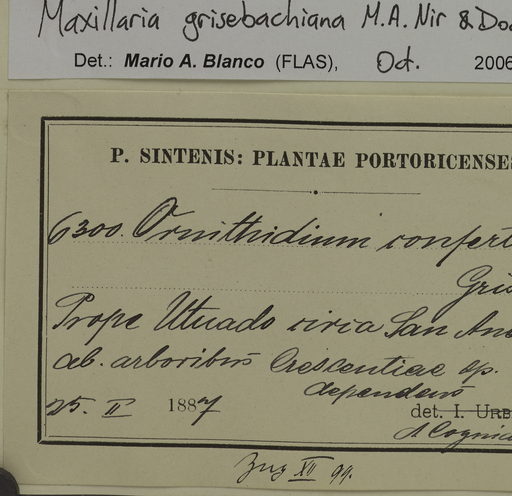 Maxillaria grisebachiana M.A. Nir & Do
Det.: Mario A. Blanco (FLAS), Oct. 2006
P. SINTENIS: PLANTAE PORTORICENSES
6300. Ornithidium confert
Gris
Prope Utuado circa San And
ab. arboribus Crescentiae sp.
dependens
25. II 1887
det. I. URB
A Cogniau
XII 99.